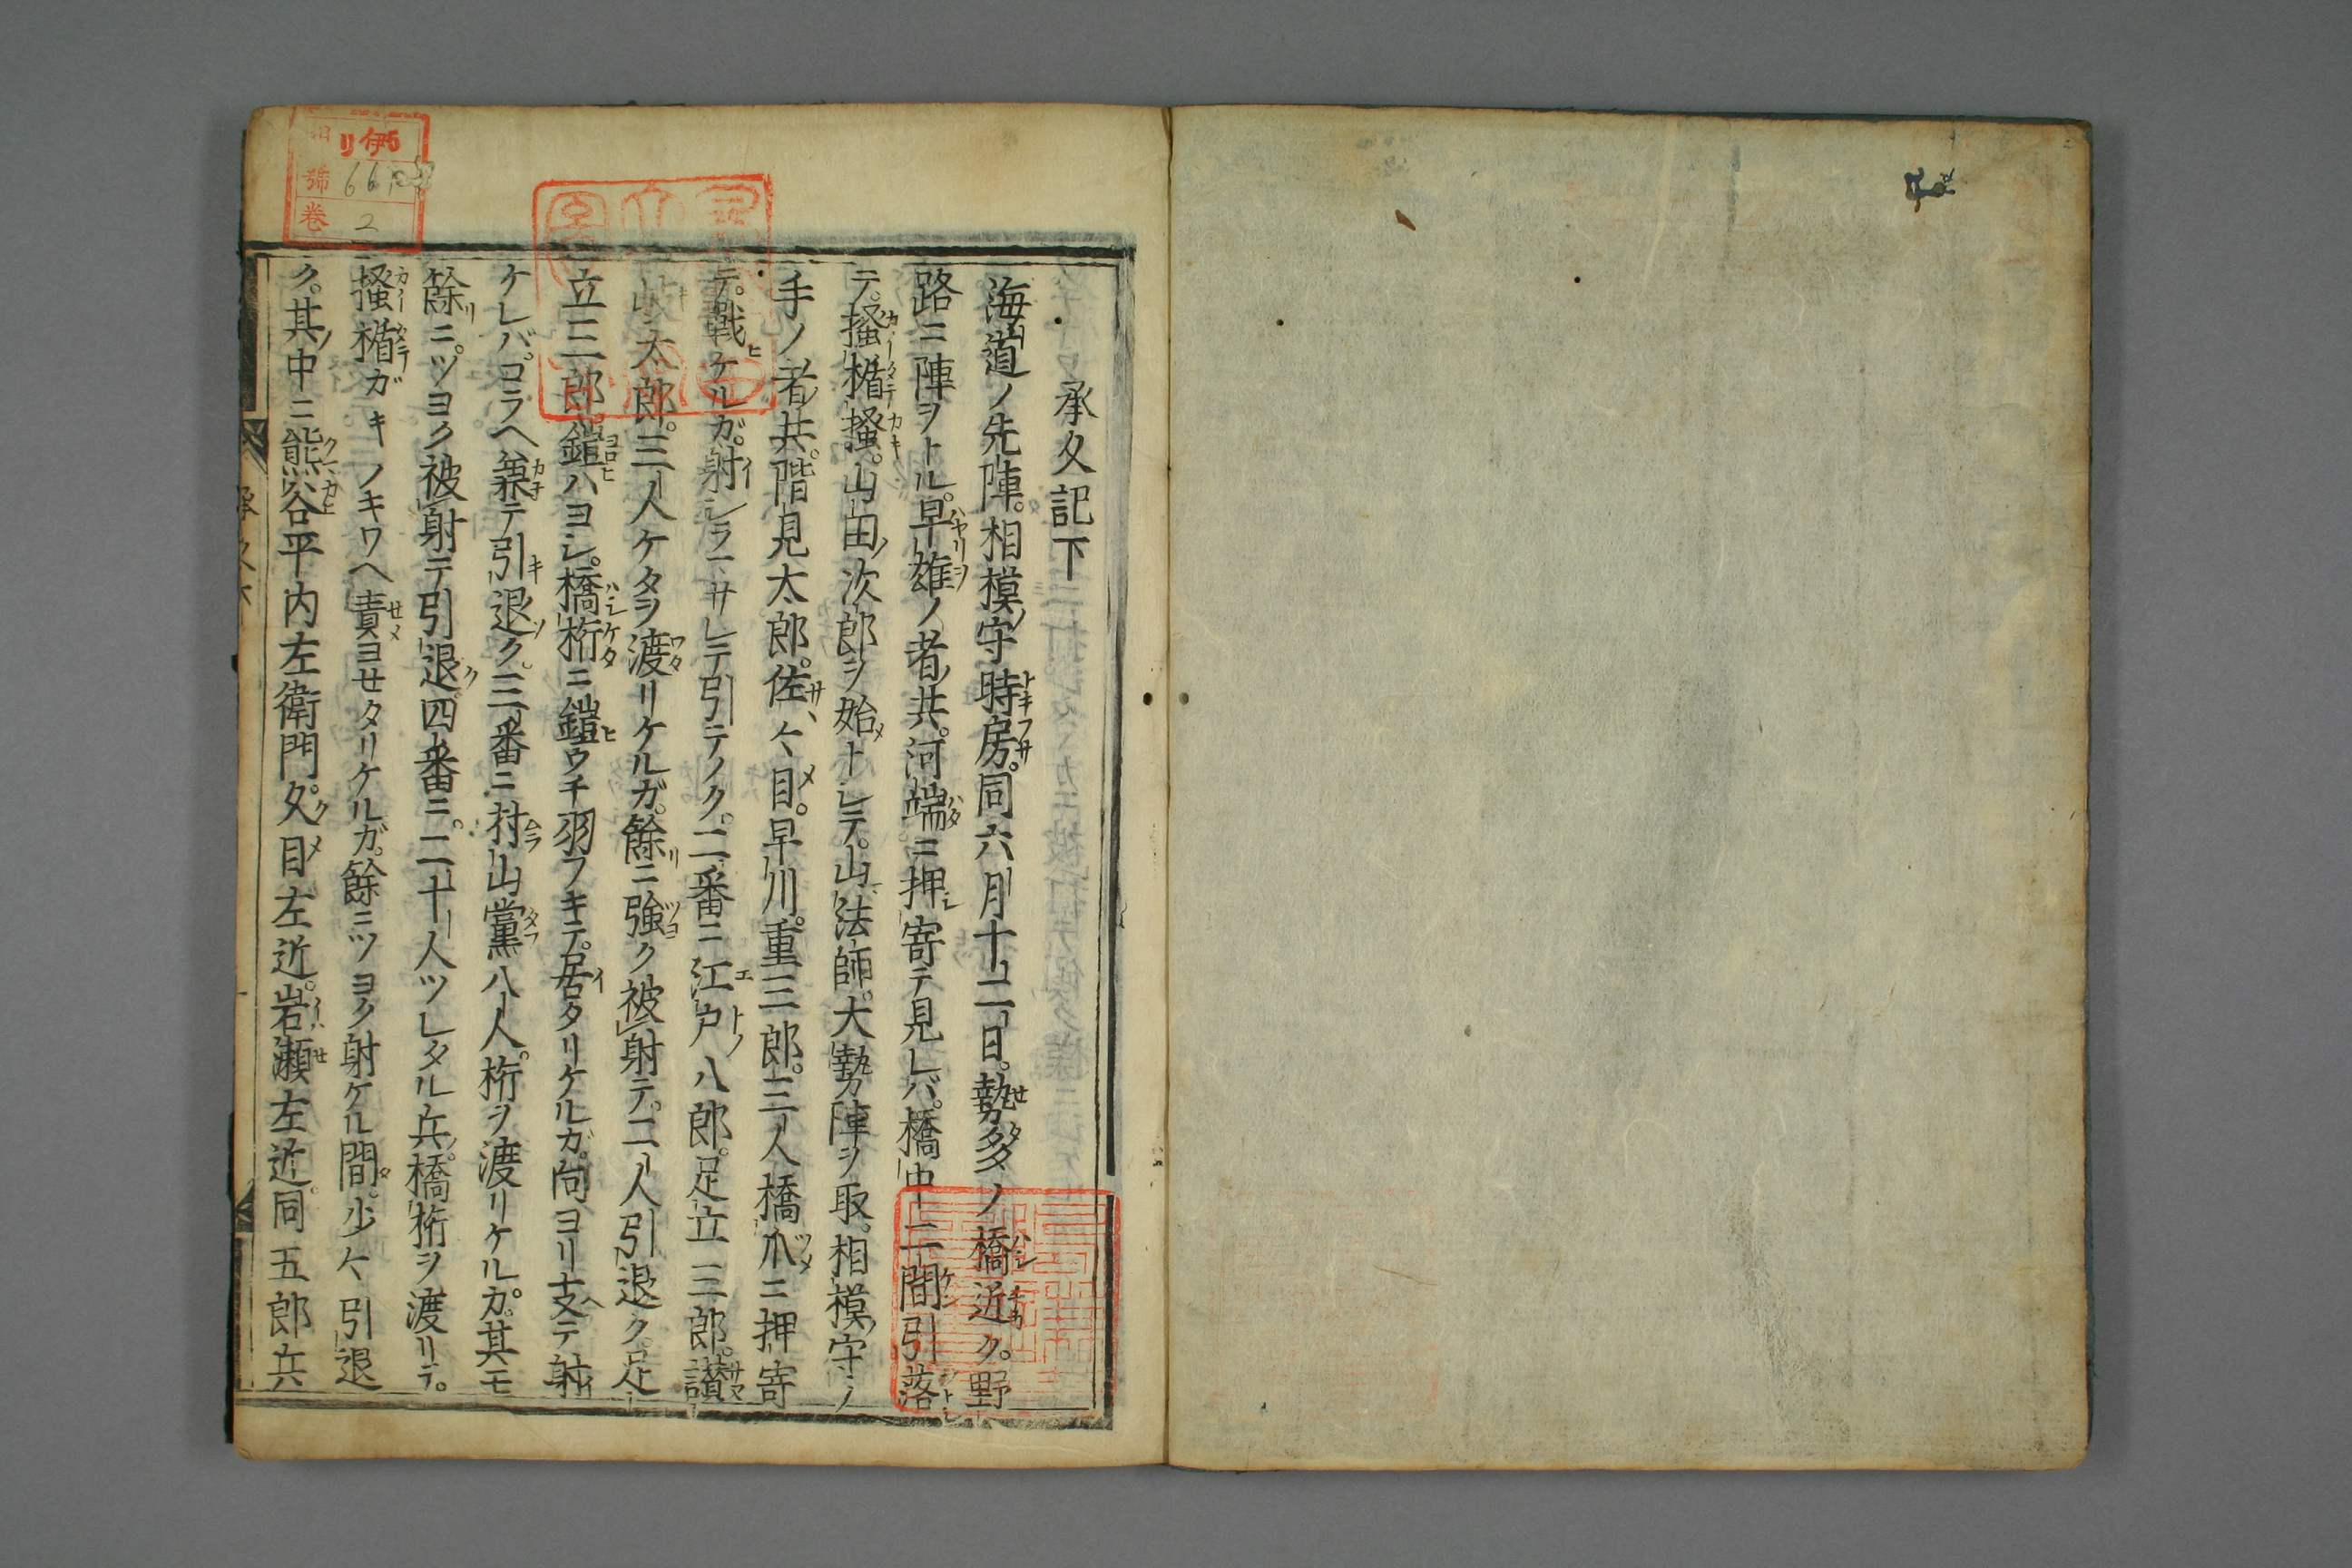 承久記下
海道ノ先陣。相模ノ守時房。同六月十二日。勢多ノ橋近ク。野
路ニ陣ヲトル。早雄ノ者共。河端ニ押寄テ見レバ。橋中二間引落
テ。掻楯掻。山田ノ次郎ヲ始トシテ。山法師。大勢陣ヲ取。相模ノ守ノ
手ノ者共。階見太郎。佐々目。早川。重三郎。三人橋爪ニ押寄
テ。戰ケルガ。射シラマサレテ引テノク。二番ニ江戸八郎。足立三郎。讃
岐太郎。三人ケタヲ渡リケルガ。餘ニ強ク被射テ。二人引退ク。足
立三郎。鎧ハヨシ。橋桁ニ鎧ウチ羽フキテ。居タリケルガ。向ヨリ支テ射
ケレバ。コラヘ兼テ引退ク。三番ニ村山黨八人。桁ヲ渡リケルガ。其モ
餘ニ。ツヨク被射テ引退。四番ニ。二十人ツレタル兵。橋桁ヲ渡リテ。
掻楯ガキノキワヘ責ヨセタリケルガ。餘ニツヨク射ケル間。少々引退
ク。其中ニ熊谷平内左衛門。久目左近。岩瀬左近。同五郎兵
リ伊5
號
6610
卷
2